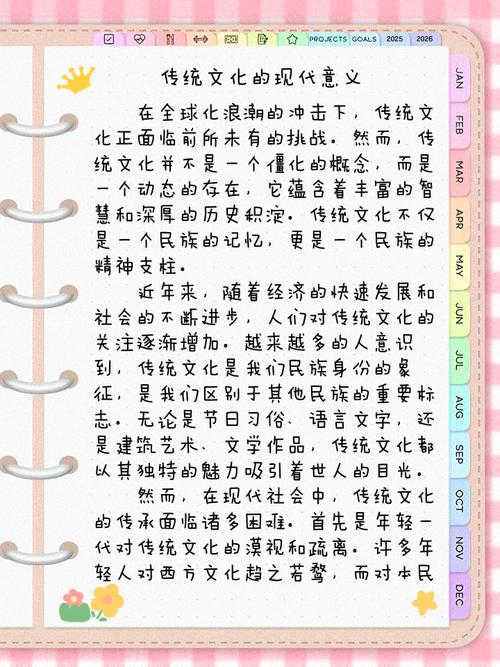 PROJECTS GOALS 2025 2026
传统文化的现代意义
在全球化浪潮的冲击下，传统文
化正面临前所未有的挑战。然而，传
统文化并不是一个僵化的概念，而是
一个动态的存在，它蕴含着丰富的智
慧和深厚的历史积淀。传统文化不仅
是一个民族的记忆，更是一个民族的
精神支柱。
近年来，随着经济的快速发展和
社会的不断进步，人们对传统文化的
关注逐渐增加。越来越多的人意识
到，传统文化是我们民族身份的象
征，是我们区别于其他民族的重要标
志。无论是节日习俗、语言文字，还
是建筑艺术、文学作品，传统文化都
以其独特的魅力吸引着世人的目光。
然而，在现代社会中，传统文化
的传承面临诸多困难。首先是年轻一
代对传统文化的漠视和疏离。许多年
轻人对西方文化趋之若鹜，而对本民
JAN
FEB
MAR
APR
MAY
JUN
JUL
AUG
SEP
OCT
NOV
DEC